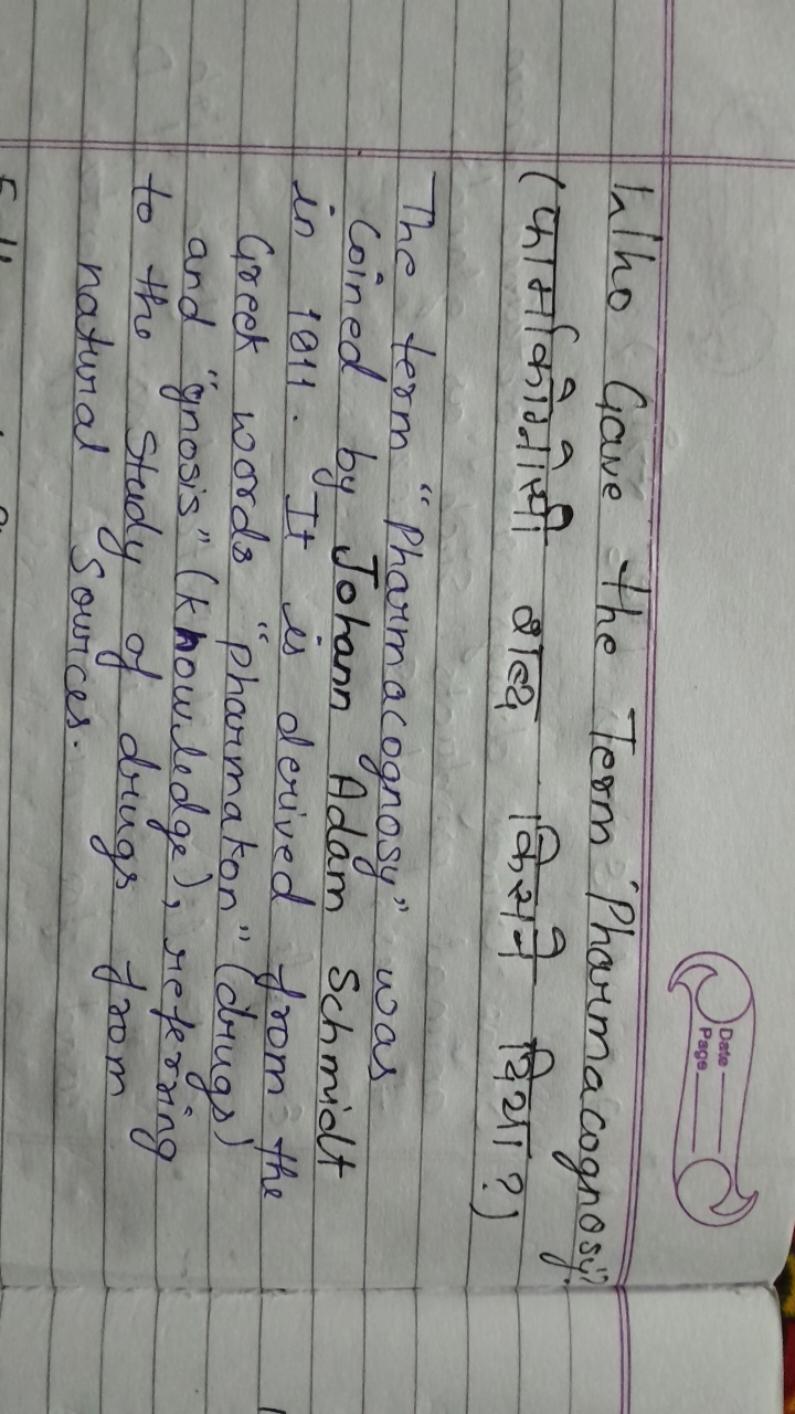 Date
Page
Who Gave the Term "Pharmacognosy"
(फार्माकोग्नोसी शब्द किसने दिया?)
The term "Pharmacognosy" was
coined by Johann Adam Schmidt
in 1811. It is derived from the
Greek words "pharmakon" (drugs)
and "gnosis" (knowledge), referring
to the study of drugs from
natural sources.